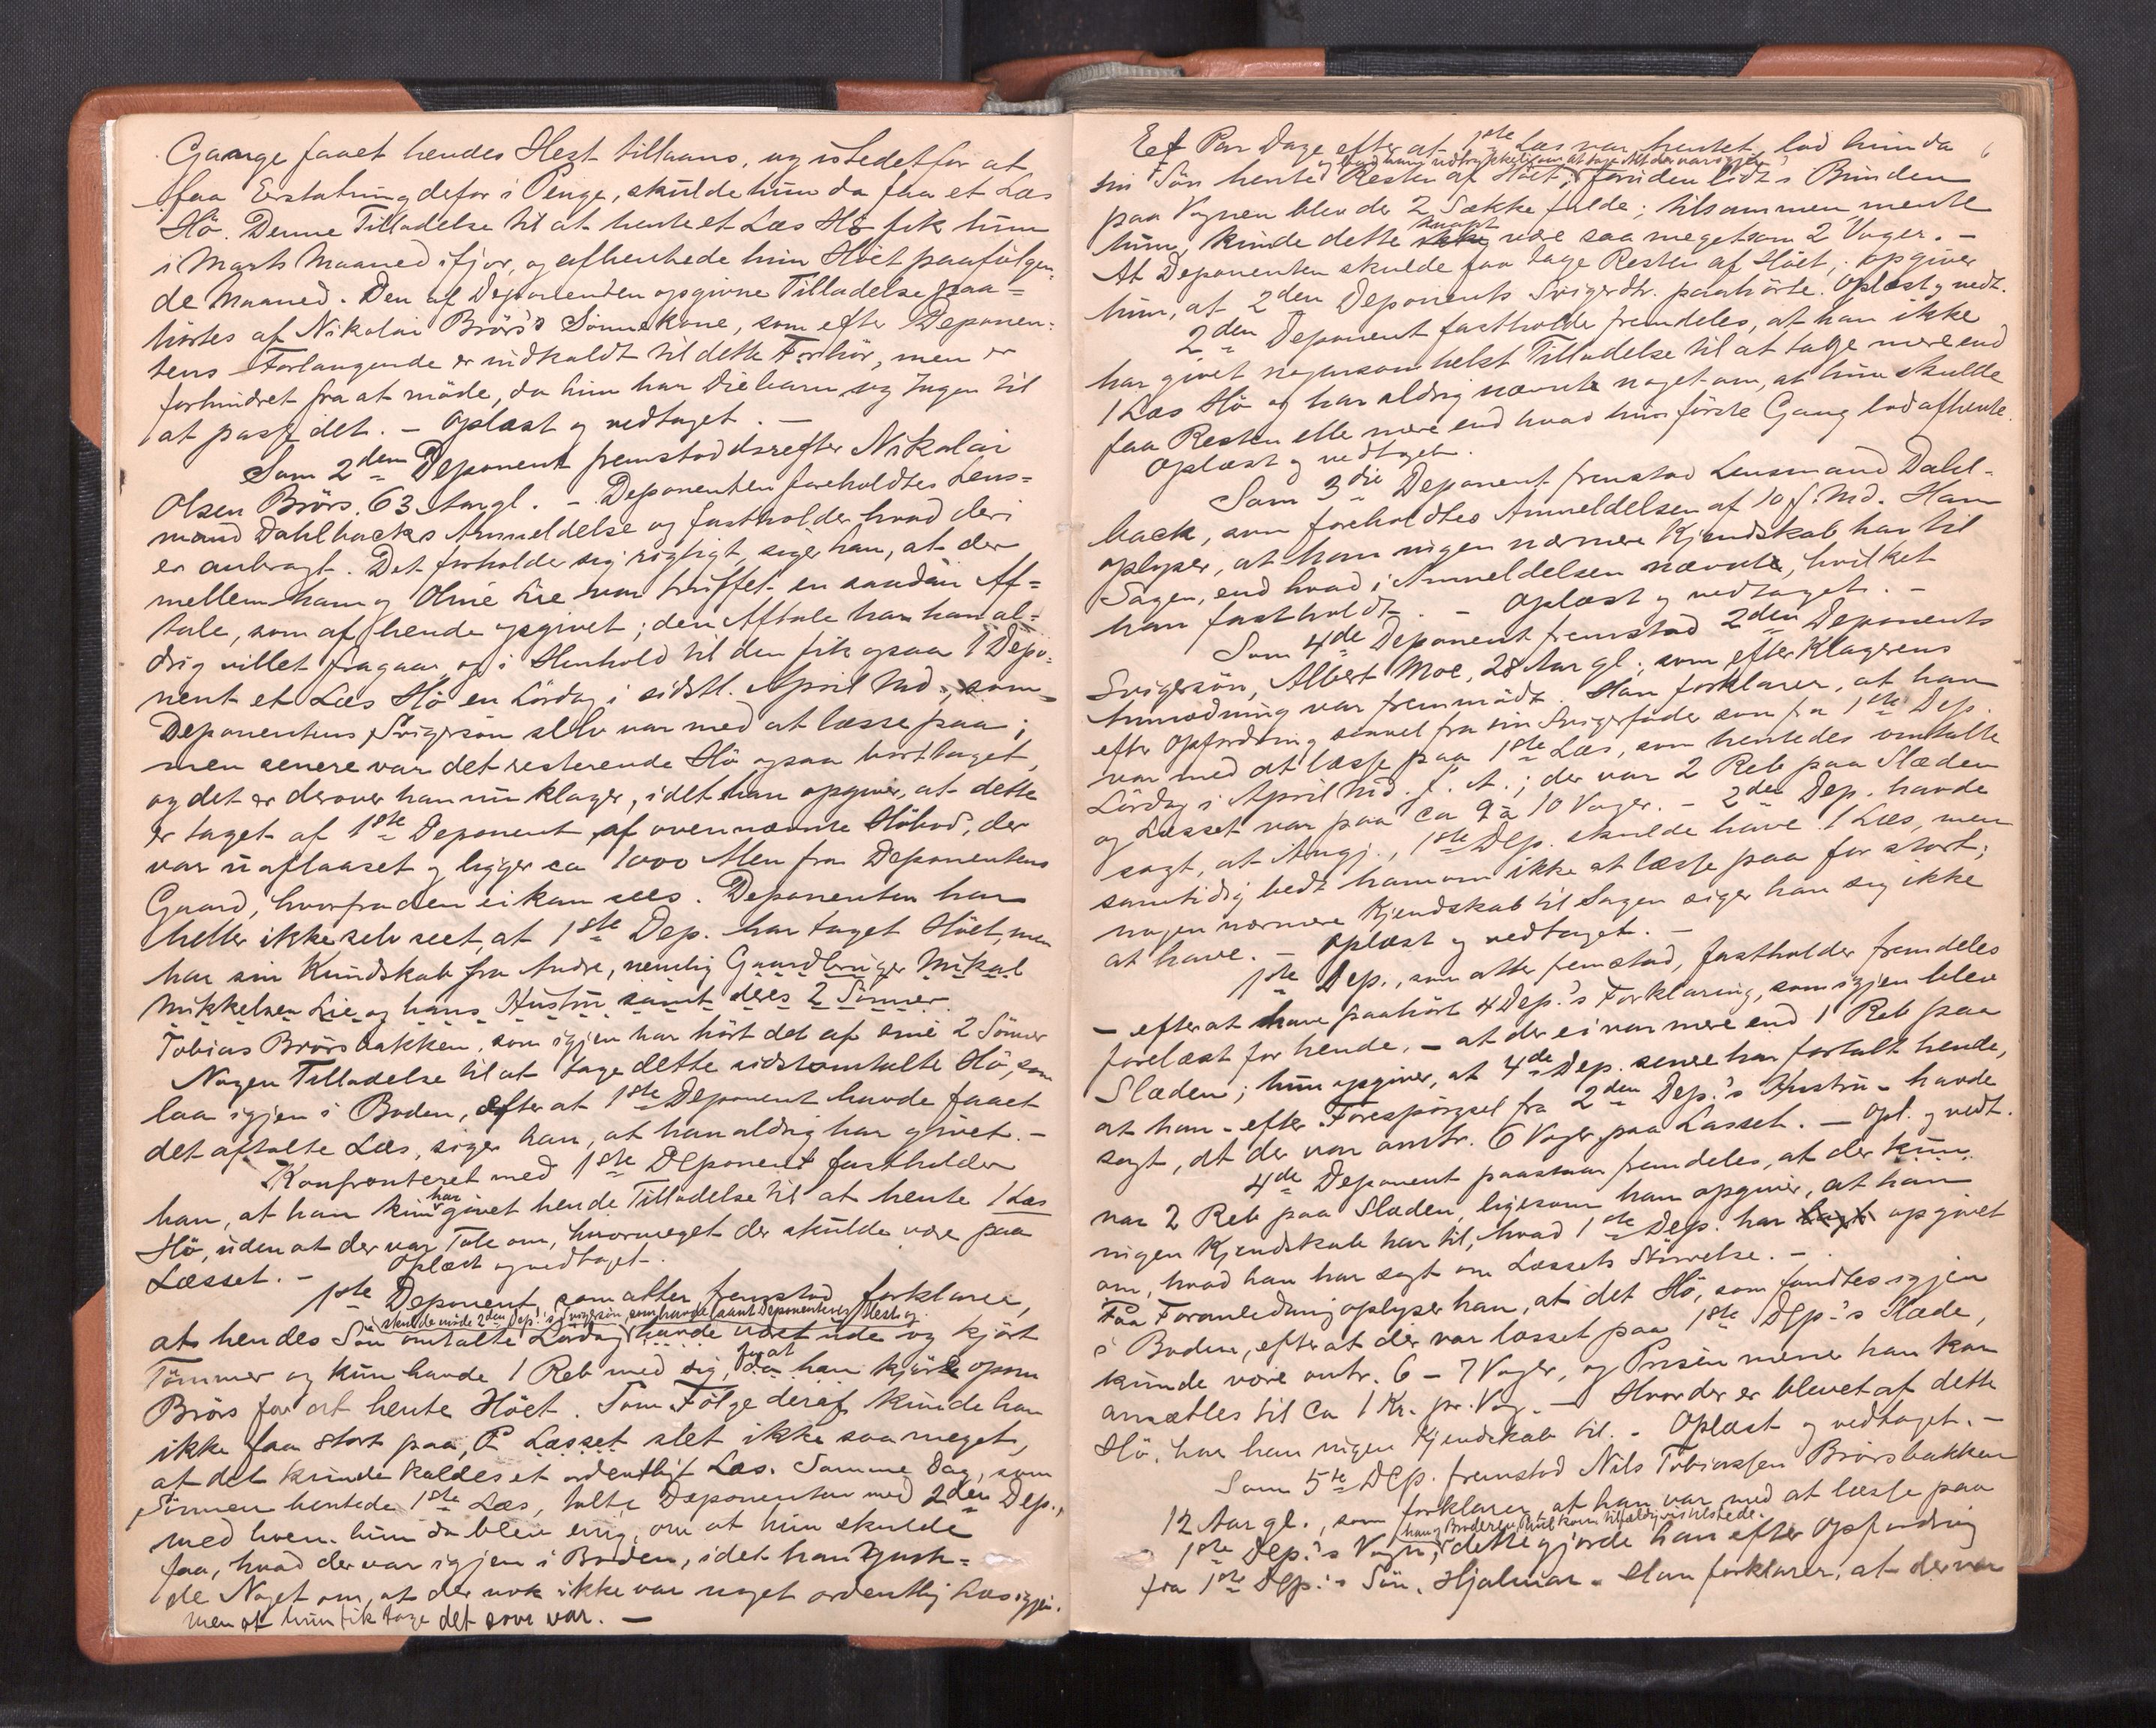 Gange faaet hendes Hest tillaans, og istedetfor at
faa Erstatning defor i Penge, skulde hun da faa et Læs
Hö. Denne Tilladelse til at hente et Læs Hö fik hun
i Marts Maaned ifjor, og afhentede hun Höet paafölgen-
de Maaned. Den af Deponenten opgivne Tilladelse paa-
hörtes af Nikolai Brörs's Sönnekone, som efter Deponen-
tens Forlangende er indkaldt til dette Forhör, men er
forhindret fra at möde, da hun har Diebarn og Ingen til
at passe det. - Oplæst og vedtaget. -
Som 2den Deponent fremstod dereefter Nikolai
Olsen Brörs. 63 Aar gl. - Deponenten foreholdtes Lens-
mand Dahlbacks Anmeldelse og fastholder hvad deri
er anbragt. Det forholder sig rigtigt, siger han, at der
mellem ham og Oline Lie var truffet en saadan Af-
tale, som af hende opgivet; den Aftale har han al-
drig villet fragaa, og i Henhold til den fik ogsaa 1 Depo-
nent et Læs Hö en Lördag i sidstl. April Md., som
Deponentens Svigersön selv var med at læsse paa;
men senere var det resterende Hö ogsaa borttaget,
og det er derover han nu klager, idet han opgiver, at dette
er taget af 1ste Deponent af ovennævnte Höbod, der
var uaflaaset og ligger ca 1000 Alen fra Deponentens
Gaard, hvorfra den ei kan sees. Deponenten har
heller ikke selv seet, at 1ste Dep. har taget Höet, men
har sin Kundskab fra Andre, nemlig Gaardbruger Mikal
Mikkelsen Lie og hans Hustru samt deres 2 Sönner
Tobias Brörsbakken, som igjen har hört det af sine 2 Sönner
Nogen Tilladelse til at tage dette sidstomtalte Hö, som
laa igjen i Boden, efter at 1ste Deponent havde faaet
det aftalte Læs, siger han, at han aldrig har givet. -
Konfronteret med 1ste Deponent fastholder
han, at han kun har givet hende Tilladelse til at hente 1 Læs
Hö, uden at der var Tale om, hvormeget der skulde være paa
Læsset. - Oplæst og vedtaget. -
1ste Deponent, som atter fremstod, forklarer,
skulde möde 2den Dep.'s Svigersön, som havde laant Deponentens Hest og
at hendes Sön omtalte Lördag havde været ude og kjört
Tömmer og kun havde 1 Reb med sig, for at da han kjörte opom
Brörs for at hente Höet. Som Fölge deraf kunde han
ikke faa stort paa, Læsset slet ikke saa meget,
at det kunde kaldes et ordentligt Læs. Samme Dag, som
Sönnen hentede 1ste Læs, talte Deponenten med 2den Dep.,
med hvem hun da blev enig om at hun skulde
faa, hvad der var igjen i Boden, idet han ymte-
de Noget om, at der nok ikke var noget ordentlig Læs igjen,
men at hun fik tage det som var. -
Eet Par Dage efter at 1ste Læs var hentet, lod hun da
og bad ham udtrykkeligen at tage Alt der var igjen
sin Sön hente Resten af Höet; foruden lidt i Bunden
paa Vognen blev der 2 Sække fulde; tilsammen mente
hun, kunde dette knapt være saa meget som 2 Voger. -
At Deponenten skulde faa tage Resten af Höet, opgiver
hun, at 2den Deponents Svigerdtr. paahörte. Oplæst og vedt.
2den Deponent fastholder fremdeles, at han ikke
har givet nogensomhelst Tilladelse til at tage mere end
1 Læs Hö og har aldrig nævnte noget om, at hun skulde
faa Resten elle mere end hvad hun förste Gang lod afhente.
Oplæst og vedtaget.
Som 3die Deponent fremstod Lensmand Dahl-
back, som foreholdtes Anmeldelsen af 10 f. Md. Han
oplyser, at han ingen nærmere Kjendskab har til
Sagen, end hvad i Anmeldelsen nævnte, hvilket
han fastholdt. - Oplæst og vedtaget. -
Som 4de Deponent fremstod 2den Deponents
Svigersön, Albert Moe, 28 Aar gl., som efter Klagerens
Anmodning var fremmödt. Han forklarer, at han
efter Opfordring saavel fra sin Svigerfader som fra 1ste Dep.
var med at læsse paa 1ste Læs, som hentedes omtalte
Lördag i April Md. f. A.; der var 2 Reb paa Slæden
og Læsset var paa ca 9 à 10 Voger. - 2den Dep. havde
sagt, at Angj., 1ste Dep. skulde have 1 Læs, men
samtidig bedt ham om ikke at læsse paa for stort;
nogen nærmere Kjendskab til Sagen siger han sig ikke
at have. - Oplæst og vedtaget. -
1ste Dep., som atter fremstod, fastholder fremdeles
- efter at have paahört 4 Dep.'s Forklaring, som igjen blev
forelæst for hende, - at der ei var mere end 1 Reb paa
Slæden; hun opgiver, at 4de Dep. senere har fortalt hende,
at han - efter Forespörgsel fra 2den Dep.'s Hustru - havde
sagt, at der var omtr. 6 Voger paa Læsset. - Opl. og vedt.
4de Deponent paastaar fremdeles, at der kun
var 2 Reb paa Slæden, ligesom han opgiver, at han
ingen Kjendskab har til, hvad 1ste Dep. har opgivet
om, hvad han har sagt om Læssets Störrelse. -
Paa Foranledning oplyser han, at det Hö, som fandtes igjen
i Boden, efter at der var læsset paa 1ste Dep.'s Slæde,
kunde være omtr. 6 - 7 Voger, og Prisen mener han kan
ansættes til ca 1 Kr. pr. Vog. - Hvor der er blevet af dette
Hö, har han ingen Kjendskab til. - Oplæst og vedtaget. -
Som 5te Dep. fremstod Nils Tobiassen Brörsbakken
12 Aar gl., som forklarer, at han var med at læsse paa
han og Broderen kom tilfældigvis tilstede.
1ste Dep.'s Vogn, dette gjorde han efter Opfordring
fra 1ste Dep.'s Sön, Hjalmar. Han forklarer, at der var